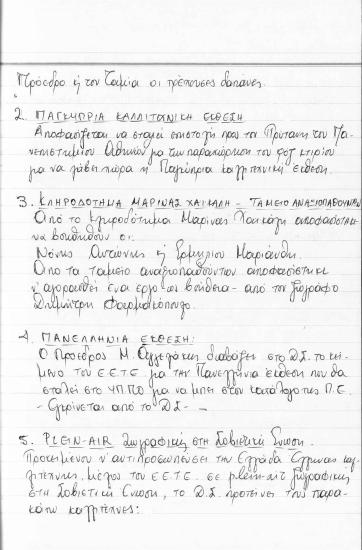 Πρόεδρο ή τον Ταμία οι πρέπουσες δαπάνες.
2. ΠΑΓΚΥΠΡΙΑ ΚΑΛΛΙΤΕΧΝΙΚΗ ΕΚΘΕΣΗ
Αποφασίζεται να σταλεί επιστολή προς τον Πρύτανη του Πα-
νεπιστημίου Αθηνών για την παραχώρηση του κτιρίου
για να λάβει χώρα η Παγκύπρια καλλιτεχνική έκθεση.
3. ΚΛΗΡΟΔΟΤΗΜΑ ΜΑΡΙΝΑΣ ΧΑΪΚΑΛΗ - ΤΑΜΕΙΟ ΑΝΑΞΙΟΠΑΘΟΥΝΤΩΝ
Από το κληροδότημα Μαρίνας Χαϊκάλη αποφασίστηκε
να βοηθηθούν οι:
Αντώνης ή Μαριάνθη.
Από το ταμείο αναξιοπαθούντων αποφασίστηκε
ν' αγορασθεί ένα έργο ως βοήθεια - από τον ζωγράφο
Δημήτρη Φαρμακόπουλο.
4. ΠΑΝΕΛΛΗΝΙΑ ΕΚΘΕΣΗ:
Ο Πρόεδρος Μ. διαβάζει στο Δ.Σ. το κεί-
μενο του Ε.Ε.Τ.Ε. για την Πανελλήνια έκθεση που θα
σταλεί στο ΥΠ.ΠΟ για να μπει στον κατάλογο της Π.Ε.
- Εγκρίνεται από το Δ.Σ. -
5. PLEIN-AIR Ζωγραφικής στη Σοβιετική Ένωση.
Προκειμένου ν' αντιπροσωπεύσει την Ελλάδα Έλληνας καλ-
λιτέχνης, μέλος του Ε.Ε.Τ.Ε. σε plein-air ζωγραφικής
στη Σοβιετική Ένωση, το Δ.Σ. προτείνει τους παρα-
κάτω καλλιτέχνες: